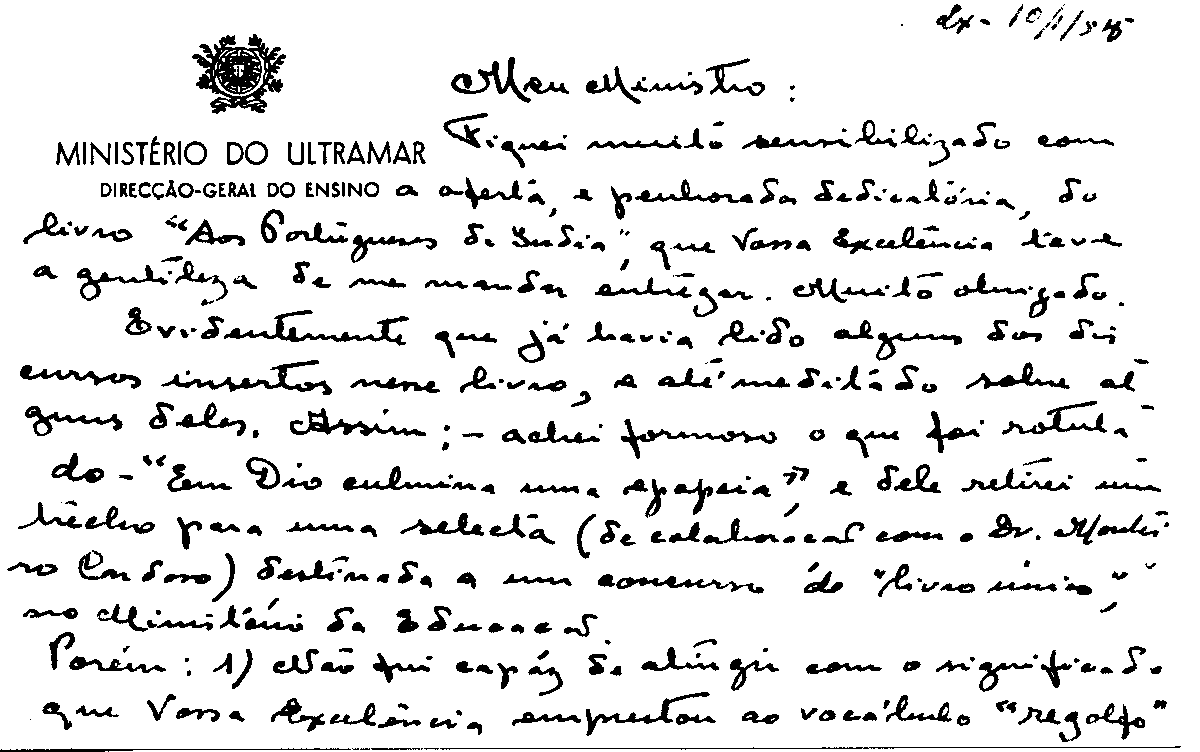 Lx - 10/1/58
Meu Ministro:
MINISTÉRIO DO ULTRAMAR
DIRECÇÃO-GERAL DO ENSINO
Fiquei muito sensibilizado com
a oferta, e penhorada dedicatória, do
livro "Aos Portugueses da India", que Vossa Excelência teve
a gentileza de me mandar entregar. Muito obrigado.
Evidentemente que já havia lido alguns dos dis
cursos insertos nesse livro, e até meditado sobre al
guns deles. Assim; - achei formoso o que foi rotula
do - "Em Dio culmina uma epopeia", e dele retirei um
trecho para uma selecta (de colaboracao com o Dr. Montei
ro Cardoso) destinada a um concurso de "livro único",
no Ministério da Educacao.
Porém: 1) Não fui capáz de atingir com o significado
que Vossa Excelência emprestou ao vocábulo "regolfo"